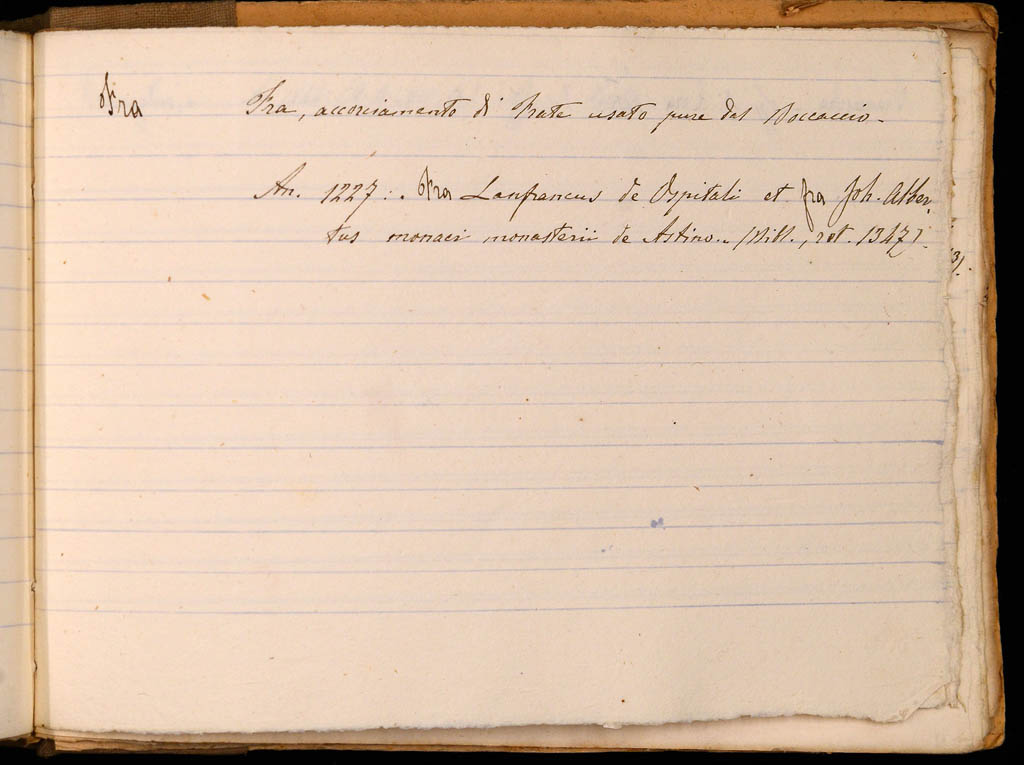 Fra
Fra, accorciamento di Frate usato pure dal Boccaccio.
An. 1227: „ Fra Lanfrancus de Ospitali et fra Joh. Alber-
tus monaci monasterii de Astino „ (Bibl., rot. 1347).
3).